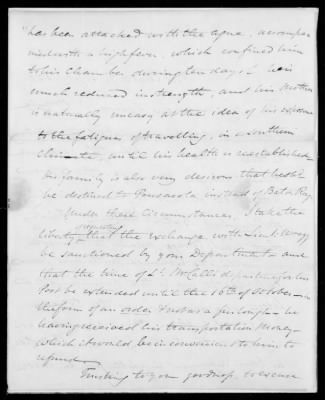 has been attacked with the ague, accompa
nied with a high fever, which confined him
to his Chamber during ten days - he is
much reduced in strength, and his Mother
is naturally uneasy at the idea of his exposure
to the fatigues of travelling, in a southern
climate, until his health is reestablished -
His family is also very desirous that he sh'd
be destined to Pensacola instead of Baton Rouge
Under these circumstances, I take the
liberty requesting that the exchange with Lieu't Wragg
be sanctioned by your Department - and
that the time of Lt. McCall's departure for his
Post be extended until the 16th of October - in
the form of an order & not as a furlough - he
having received his transportation Money -
which it would be inconvenient to him to
refund -
Trusting to your goodness to excuse